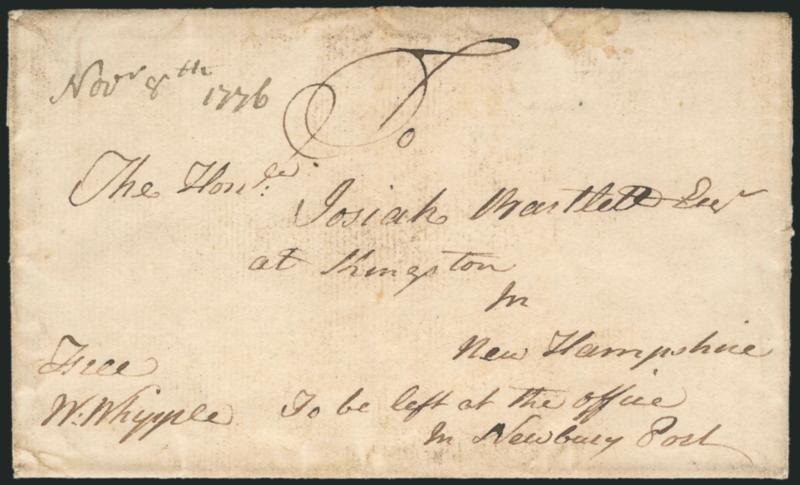 Novr 8th 1776
To
The Honble.
Josiah Bartlett Esqr
at Kingston
In
New Hampshire
Free
W. Whipple
To be left at the office
In Newbury Port